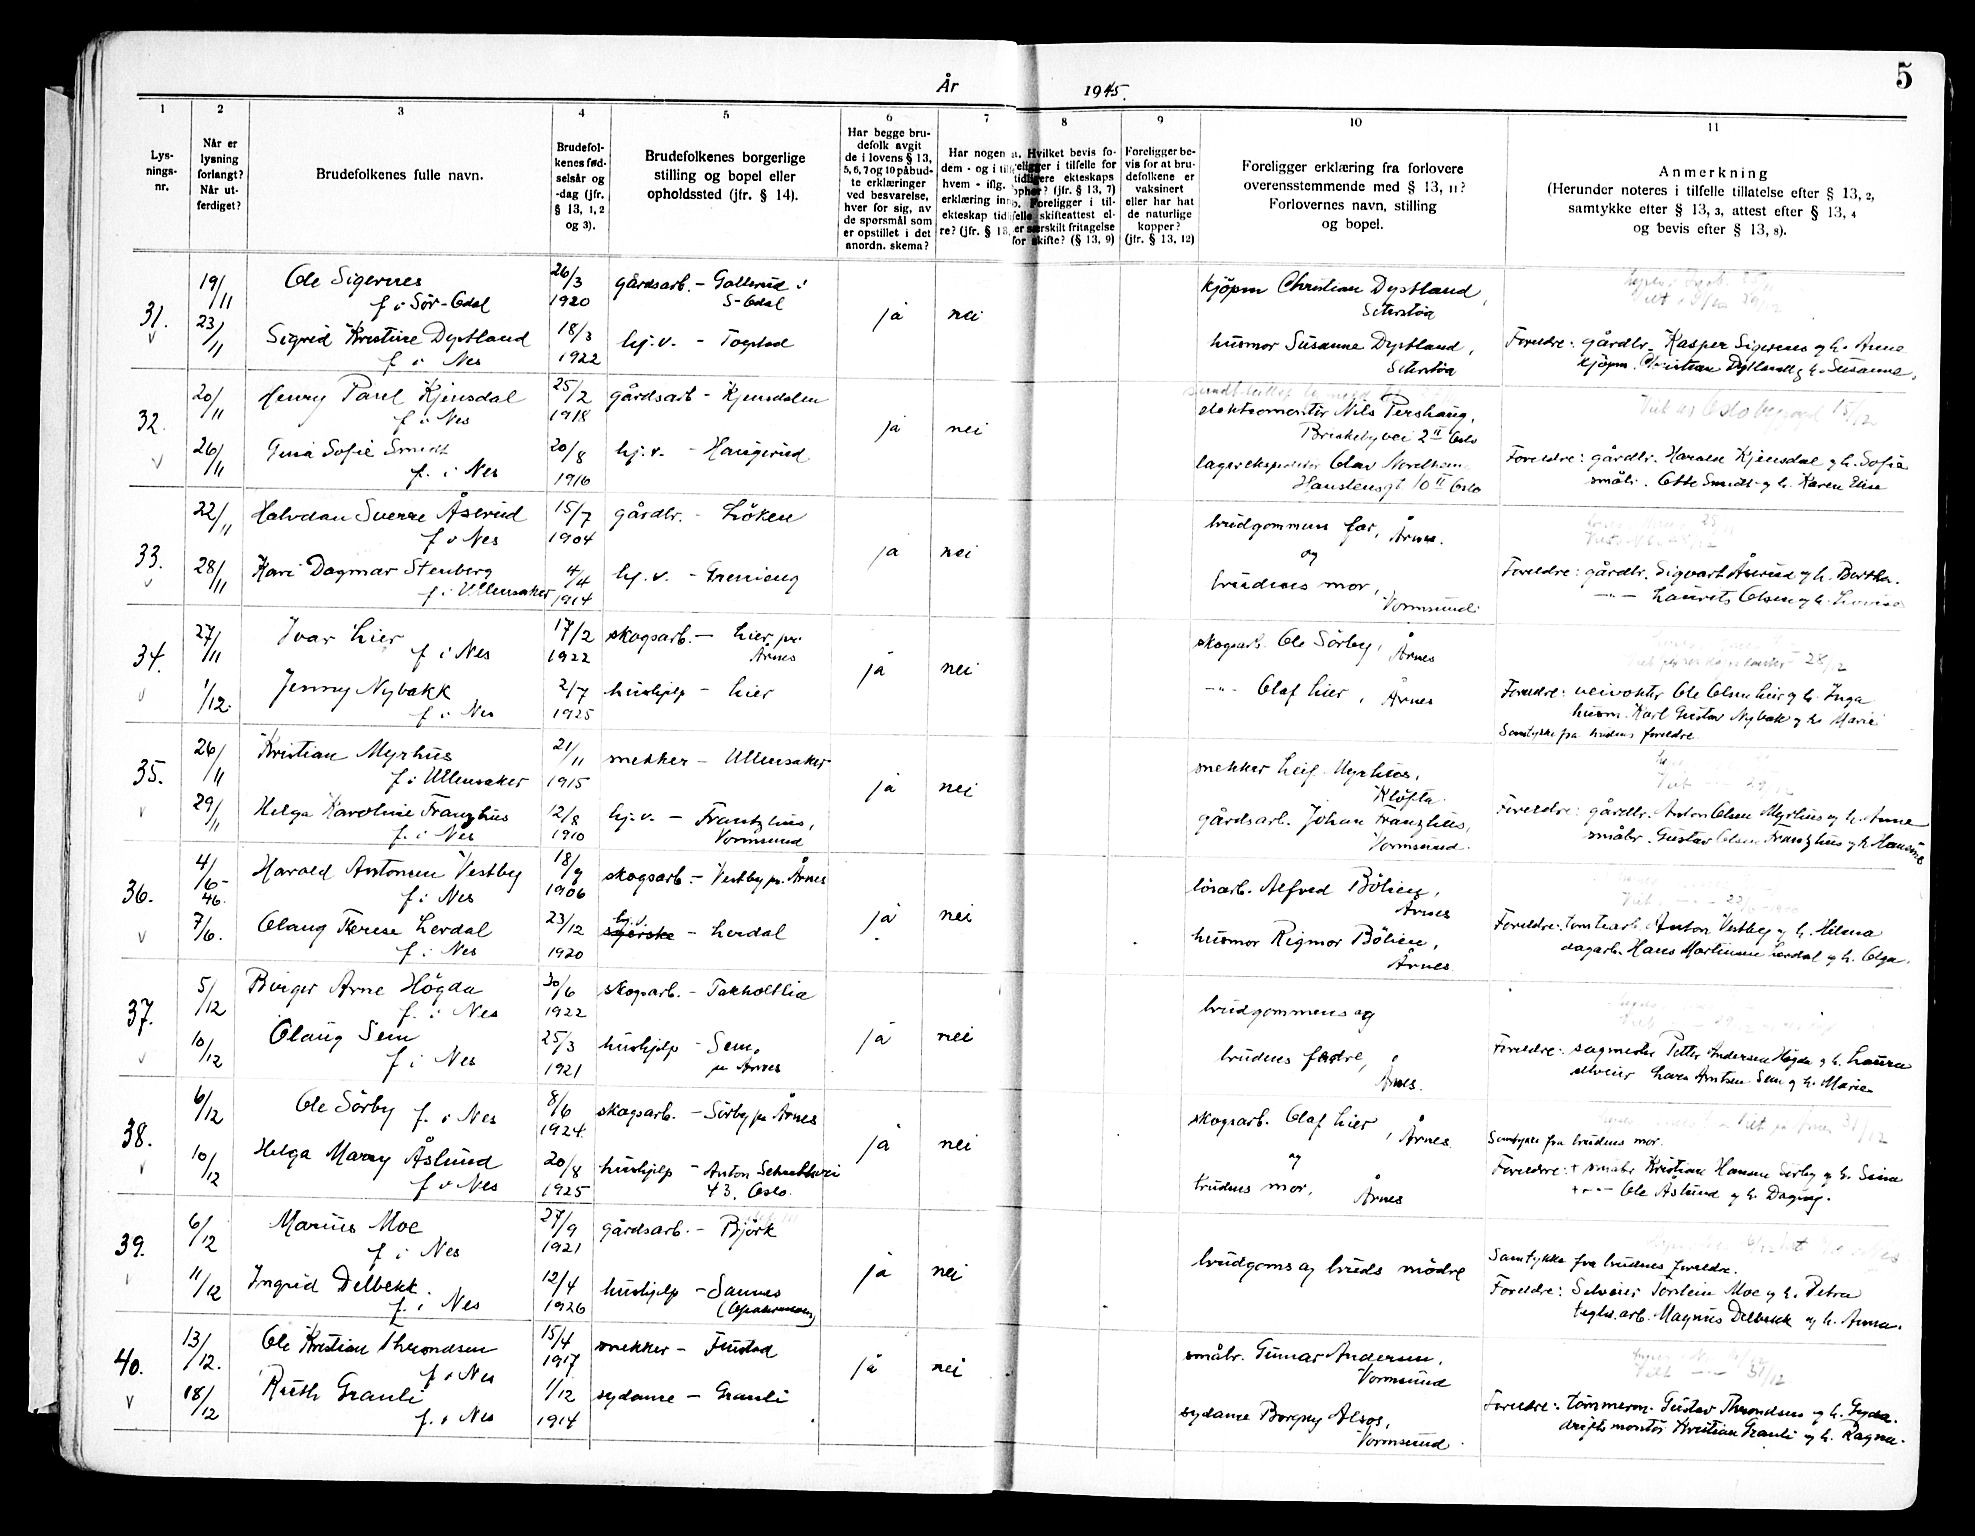 5
År 1945.
1 2 3 4 5 6 7 8 9 10 11
Lys-
nings-
nr.
Når er
lysning
forlangt?
Når ut-
ferdiget?
Brudefolkenes fulle navn.
Brudefol-
kenes fød-
selsår og
-dag (jfr.
§ 13, 1, 2
og 3).
Brudefolkenes borgerlige
stilling og bopel eller
opholdssted (jfr. § 14).
Har begge bru-
defolk avgit
de i lovens § 13,
5, 6, 7 og 10 påbud-
te erklæringer
ved besvarelse,
hver for sig, av
de spørsmål som
er opstillet i det
anordn. skema?
Har nogen
dem - og i
hvem - iflg.
erklæring
ekteskap tid
re? (jfr. § 13,
Hvilket bevis fo-
religger i tilfelle for
tidligere ekteskaps
ophør? (jfr. § 13, 7)
Foreligger i til-
felle skifteattest el-
er særskilt fritagelse
for skifte? (§ 13, 9)
Foreligger be-
vis for at bru-
defolkene er
vaksinert
eller har hat
de naturlige
kopper?
(jfr. § 13, 12)
Foreligger erklæring fra forlovere
overensstemmende med § 13, 11?
Forlovernes navn, stilling
og bopel.
Anmerkning
(Herunder noteres i tilfelle tillatelse efter § 13, 2,
samtykke efter § 13, 3, attest efter § 13, 4
og bevis efter § 13, 8).
31.
19/11 Ole Sigernes 26/3 gårdsarb. - Gallerud i
f i Sør-Odal 1920 S-Odal
ja nei
kjöpm Christian Dystland,
Seterstöa
23/11 Sigrid Kristine Dystland 18/3 hj.v. - Togstad
f i Nes 1922
husmor Susanne Dystland,
Seterstöa
Foreldre: gårdbr. Kasper Sigernes og h. Anne
kjöpm. Christian Dystland og h. Susanne.
32.
20/11 Henry Paul Kjensdal 25/2 gårdsarb - Kjensdalen
f i Nes 1918
ja nei
elektromontör Nils Pershaug,
Briskebyvei 2 II Oslo
26/11 Gina Sofie Smedt 20/8 hj.v. - Haugerud
f. i Nes 1916
lagerekspeditör Olav Nordheim
Hanstensgt 10 II Oslo
Foreldre: gårdbr. Harald Kjensdal og h. Sofie
småbr. Otto Smedt og h. Karen Elise
33.
22/11 Halvdan Sverre Åserud 15/7 gårdbr. - Löken
f i Nes 1904
ja nei
brudgommens far, Årnes.
og
28/11 Kari Dagmar Stenberg 4/4 hj.v. - Grenieng
f i Ullensaker 1914
brudens mor,
Vormsund
Foreldre: gårdbr. Sigvart Åserud og h. Bertha.
-"- Laurits Olsen og h. Lovise
34.
27/11 Ivar Lier 17/2 skogsarb. - Lier pr.
f i Nes 1922 Årnes
ja nei
skogsarb. Ole Sörby, Årnes
1/12. Jenny Nybakk 2/7 hushjelp - Lier
f. i Nes 1925
-"- Olaf Lier, Årnes
28/12
Foreldre: veivokter Ole Olsen Lier og h. Inga
husm. Karl Gustav Nybak og h. Marie
Samtykke fra brudens foreldre.
35.
26/11 Kristian Myrhus 21/11 snekker - Ullensaker
f i Ullensaker 1915
ja nei
snekker Leif Myrhus,
Klöfta.
29/11 Helga Karoline Franzhus 12/8 hj.v. - Frantzhus,
f. i Nes 1910 Vormsund
gårdsarb. Johan Franzhus,
Vormsund.
Foreldre: gårdbr. Anton Olsen Myrhus og h. Anne
småbr. Gustav Olsen Franzhus og h Hansine
36.
4/6-46. Harald Antonsen Vestby 18/9 skogsarb. - Vestby pr. Årnes
f. i Nes 1906
ja nei
lösarb. Alfred Bölien,
Årnes
7/6. Olaug Terese Lerdal 23/12 hj.v. - Lerdal
f. i Nes 1920
husmor Rigmor Bölien,
Årnes
Foreldre: tomtearb Anton Vestby og h. Helena
dagarb. Hans Martinsen Lerdal og h. Olga.
37.
5/12 Birger Arne Högda 30/6 skogsarb. - Takholtlia
f. i Nes 1922
ja nei
brudgommens og
10/12 Olaug Sem 25/3 hushjelp - Sem,
f i Nes 1921 pr Årnes
brudens fedre,
Årnes.
Foreldre: sagmester Petter Andersen Högda og h. Laura
selveier Lars Arntsen Sem og h. Marie
38.
6/12 Ole Sörby f. i Nes 8/6 skogsarb. - Sörby pr Årnes
1924.
ja nei
skogsarb. Olaf Lier, Årnes
og
10/12 Helga Marry Åslund 20/8 hushjelp - Anton Schultsvei
f i Nes 1925 43. Oslo.
brudens mor, Årnes
Samtykke fra brudens mor.
Foreldre: + småbr Kristian Hansen Sörby og h. Sina
+ -"- Ole Åslund og h. Dagny.
39.
6/12 Marius Moe 27/9 gårdsarb. - Björk
f i Nes 1921
ja nei
brudgoms og bruds mödre
11/12 Ingrid Delbekk. 12/4 hushjelp - Sannes
f. i Nes 1926
Samtykke fra brudens foreldre.
Foreldre: Selveier Torstein Moe og h. Petra
teglv.arb. Magnus Delbekk og h. Anna.
40.
13/12. Ole Kristian Throndsen 15/4 snekker - Funstad
f i Nes 1917
ja nei
småbr. Gunnar Andersen,
Vormsund
18/12 Ruth Granli 1/12 sydame - Granli
f. i Nes 1914
sydame Borgny Alsos,
Vormsund.
31/12
Foreldre: tömmerm. Gustav Throndsen og h. Gyda.
drifts montör Kristian Granli og h. Ragna.